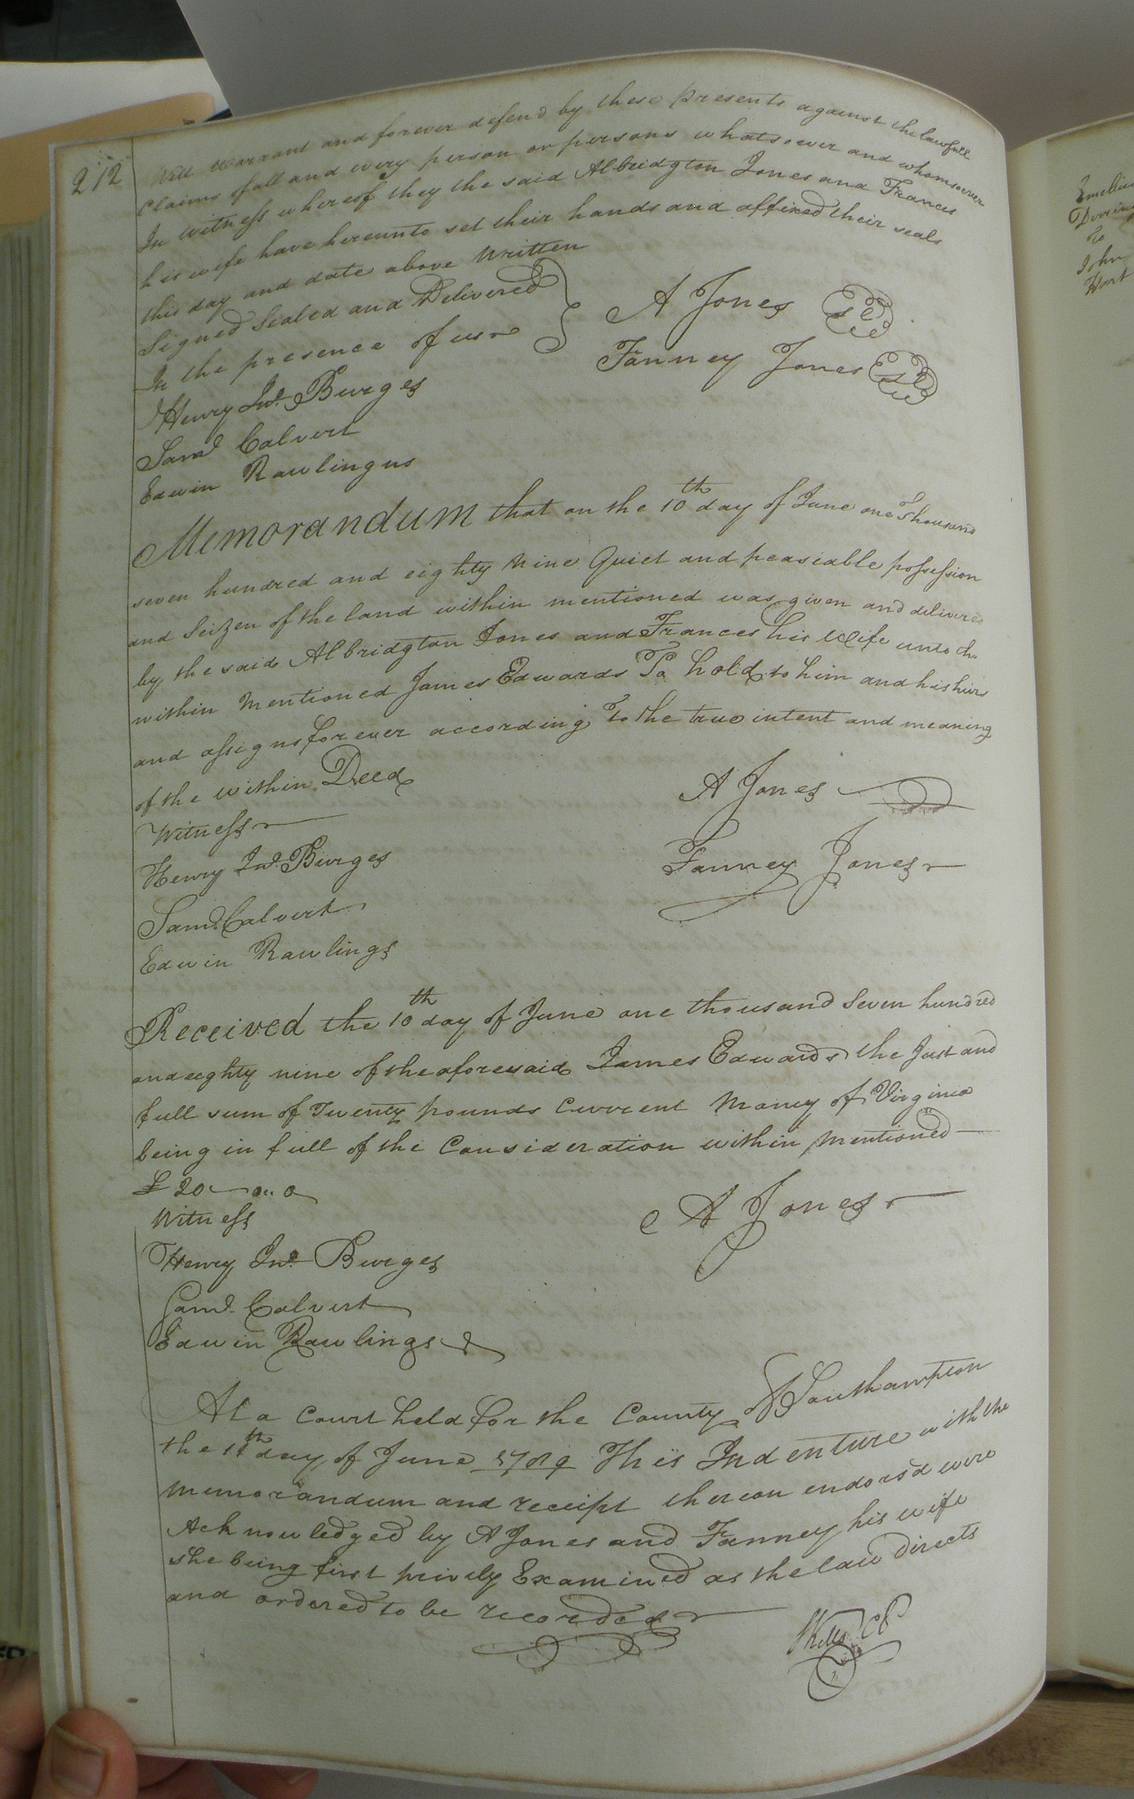 212
Will Warrant and forever defend by these presents against the lawfull
Claims of all and every person or persons whatsoever and whomsoever
In Witness whereof they the said Albridgton Jones and Francis
his wife have hereunto set their hands and affixed their seals
this day and date above Written
Signed Sealed and Delivered
In the presence of us
A Jones
Fanney Jones
Henry Jno. Burges
Saml Calvert
Edwin Rawlingns
Memorandum that on the 10th day of June one Thousand
seven hundred and eighty Nine Quiet and peaseable possession
and Seizen of the land within mentioned was given and delivered
by the said Albridgton Jones and Frances his Wife unto th
within Mentioned James Edwards To hold to him and his heirs
and assigns forever according To the true intent and meaning
of the within Deed
A Jones
Witness
Fanney Jones
Henry Jno. Burges
Saml. Calvert
Edwin Rawlings
Received the 10th day of June one thousand Seven hundred
and eighty nine of the aforesaid James Edwards the Just and
full sum of Twenty pounds Current Money of Virginia
being in full of the Consideration within Mentioned
£20 - 0 .. 0
A Jones
Witness
Henry Jno. Burges
Saml. Calvert
Edwin Rawlings
At a Court held for the County of Southampton
the 11th day of June 1789 This Indenture with the
memorandum and receipt thereon endorsd were
Acknowledged by A Jones and Fanney his wife
she being first privily Examined as the law directs
and ordered to be recorded
Emelius
To
John
Hart